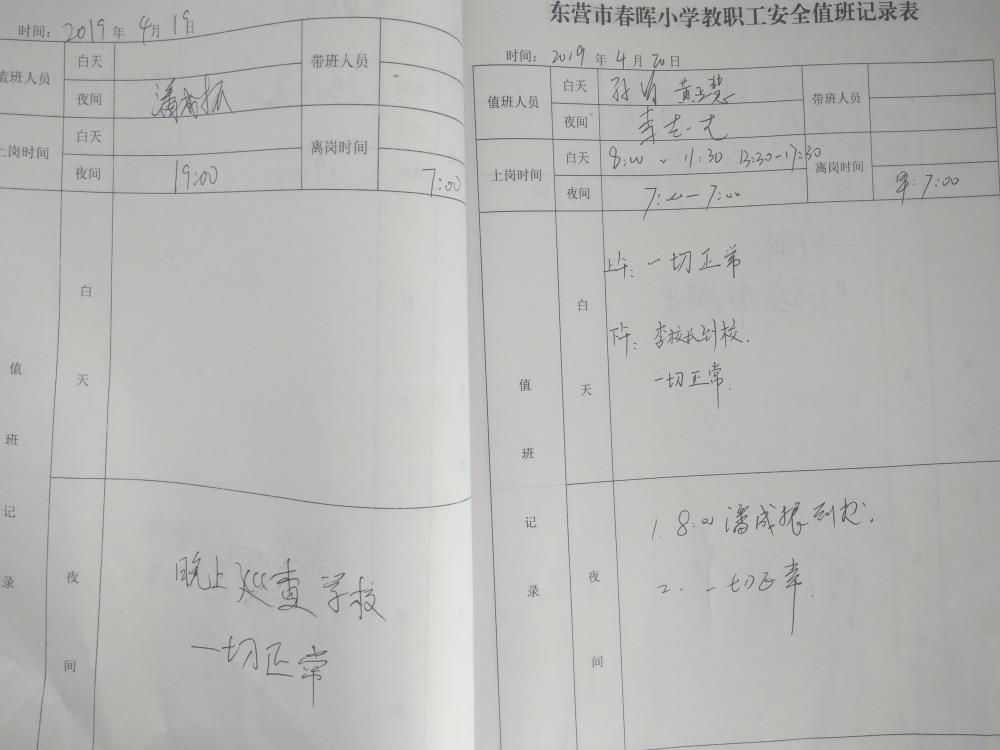 时间: 2019 年 4 月 19 日
值班人员 白天 带班人员
夜间
上岗时间 白天 离岗时间
夜间 19:00 7:00
值班记录
白天
夜间
晚上巡查学校
一切正常
东营市春晖小学教职工安全值班记录表
时间: 2019 年 4 月 20 日
值班人员 白天 带班人员
夜间
上岗时间 白天 8:00 ~ 11:30 13:30-17:30 离岗时间
夜间 7:00-7:00 早:7:00
值班记录
白天
上午: 一切正常
下午: 李校长到校.
一切正常.
夜间
1. 8:00 潘成振到校.
2. 一切正常.